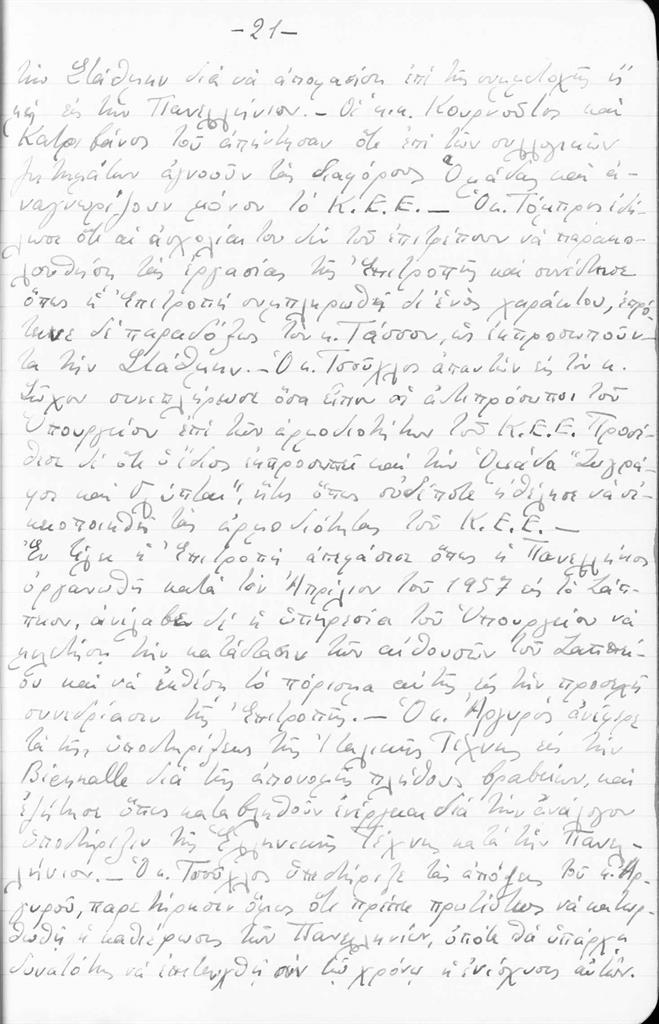 -21-
τὴν Στάθμην διὰ νὰ ἀποφασίσῃ ἐπὶ τῆς συμμετοχῆς ἢ
μὴ εἰς τὴν Πανελλήνιον.- Οἱ κ.κ. Κουρνοῦτος καὶ
Κατριβάνος τοῦ ἀπήντησαν ὅτι ἐπὶ τῶν συλλογικῶν
ζητημάτων ἀγνοοῦν τὰς διαφόρους Ὁμάδας καὶ ἀ-
ναγνωρίζουν μόνον τὸ Κ.Ε.Ε.- Ὁ κ. Τόμπρος ἐδή-
λωσε ὅτι αἱ ἀσχολίαι του δὲν τοῦ ἐπιτρέπουν νὰ παρακο-
λουθήσῃ τὰς ἐργασίας τῆς Ἐπιτροπῆς καὶ συνέστησε
ὅπως ἡ Ἐπιτροπὴ συμπληρωθῇ δι' ἑνὸς χαράκτου, ἐπρό-
τεινε δὲ παραδόξως τὸν κ. Τάσσον, ὡς ἐκπροσωποῦν-
τα τὴν Στάθμην.- Ὁ κ. Τσοῦχλος ἀπαντῶν εἰς τὸν κ.
Σῶχον συνεπλήρωσε ὅσα εἶπον οἱ ἀντιπρόσωποι τοῦ
Ὑπουργείου ἐπὶ τῶν ἁρμοδιοτήτων τοῦ Κ.Ε.Ε. Προσέ-
θεσε δὲ ὅτι ὁ ἴδιος ἐκπροσωπεῖ καὶ τὴν Ὁμάδα "Ζωγρά-
φοι καὶ Γλύπται", ἥτις ὅμως οὐδέποτε ἠθέλησε νὰ οἰ-
κειοποιηθῇ τὰς ἁρμοδιότητας τοῦ Κ.Ε.Ε.-
Ἐν τέλει ἡ Ἐπιτροπὴ ἀπεφάσισε ὅπως ἡ Πανελλήνιος
ὀργανωθῇ κατὰ τὸν Ἀπρίλιον τοῦ 1957 εἰς τὸ Ζάπ-
πειον, ἀνέλαβε δὲ ἡ ὑπηρεσία τοῦ Ὑπουργείου νὰ
μελετήσῃ τὴν κατάστασιν τῶν αἰθουσῶν τοῦ Ζαππεί-
ου καὶ νὰ ἐκθέσῃ τὸ πόρισμα αὐτῆς εἰς τὴν προσεχῆ
συνεδρίασιν τῆς Ἐπιτροπῆς.- Ὁ κ. Ἀργυρὸς ἀνέφερε
τὰ τῆς ὑποστηρίξεως τῆς Ἰταλικῆς Τέχνης εἰς τὴν
Biennalle διὰ τῆς ἀπονομῆς πλήθους βραβείων, καὶ
ἐζήτησε ὅπως καταβληθοῦν ἐνέργειαι διὰ τὴν ἀνάλογον
ὑποστήριξιν τῆς Ἑλληνικῆς Τέχνης κατὰ τὴν Πανελ-
λήνιον.- Ὁ κ. Τσοῦχλος ὑπεστήριξε τὰς ἀπόψεις τοῦ κ. Ἀρ-
γυροῦ, παρετήρησεν ὅμως ὅτι πρέπει πρωτίστως νὰ κατορ-
θωθῇ ἡ καθιέρωσις τῶν Πανελληνίων, ὁπότε θὰ ὑπάρχῃ
δυνατότης νὰ ἐπιτευχθῇ σὺν τῷ χρόνῳ ἡ ἐνίσχυσις αὐτῶν.